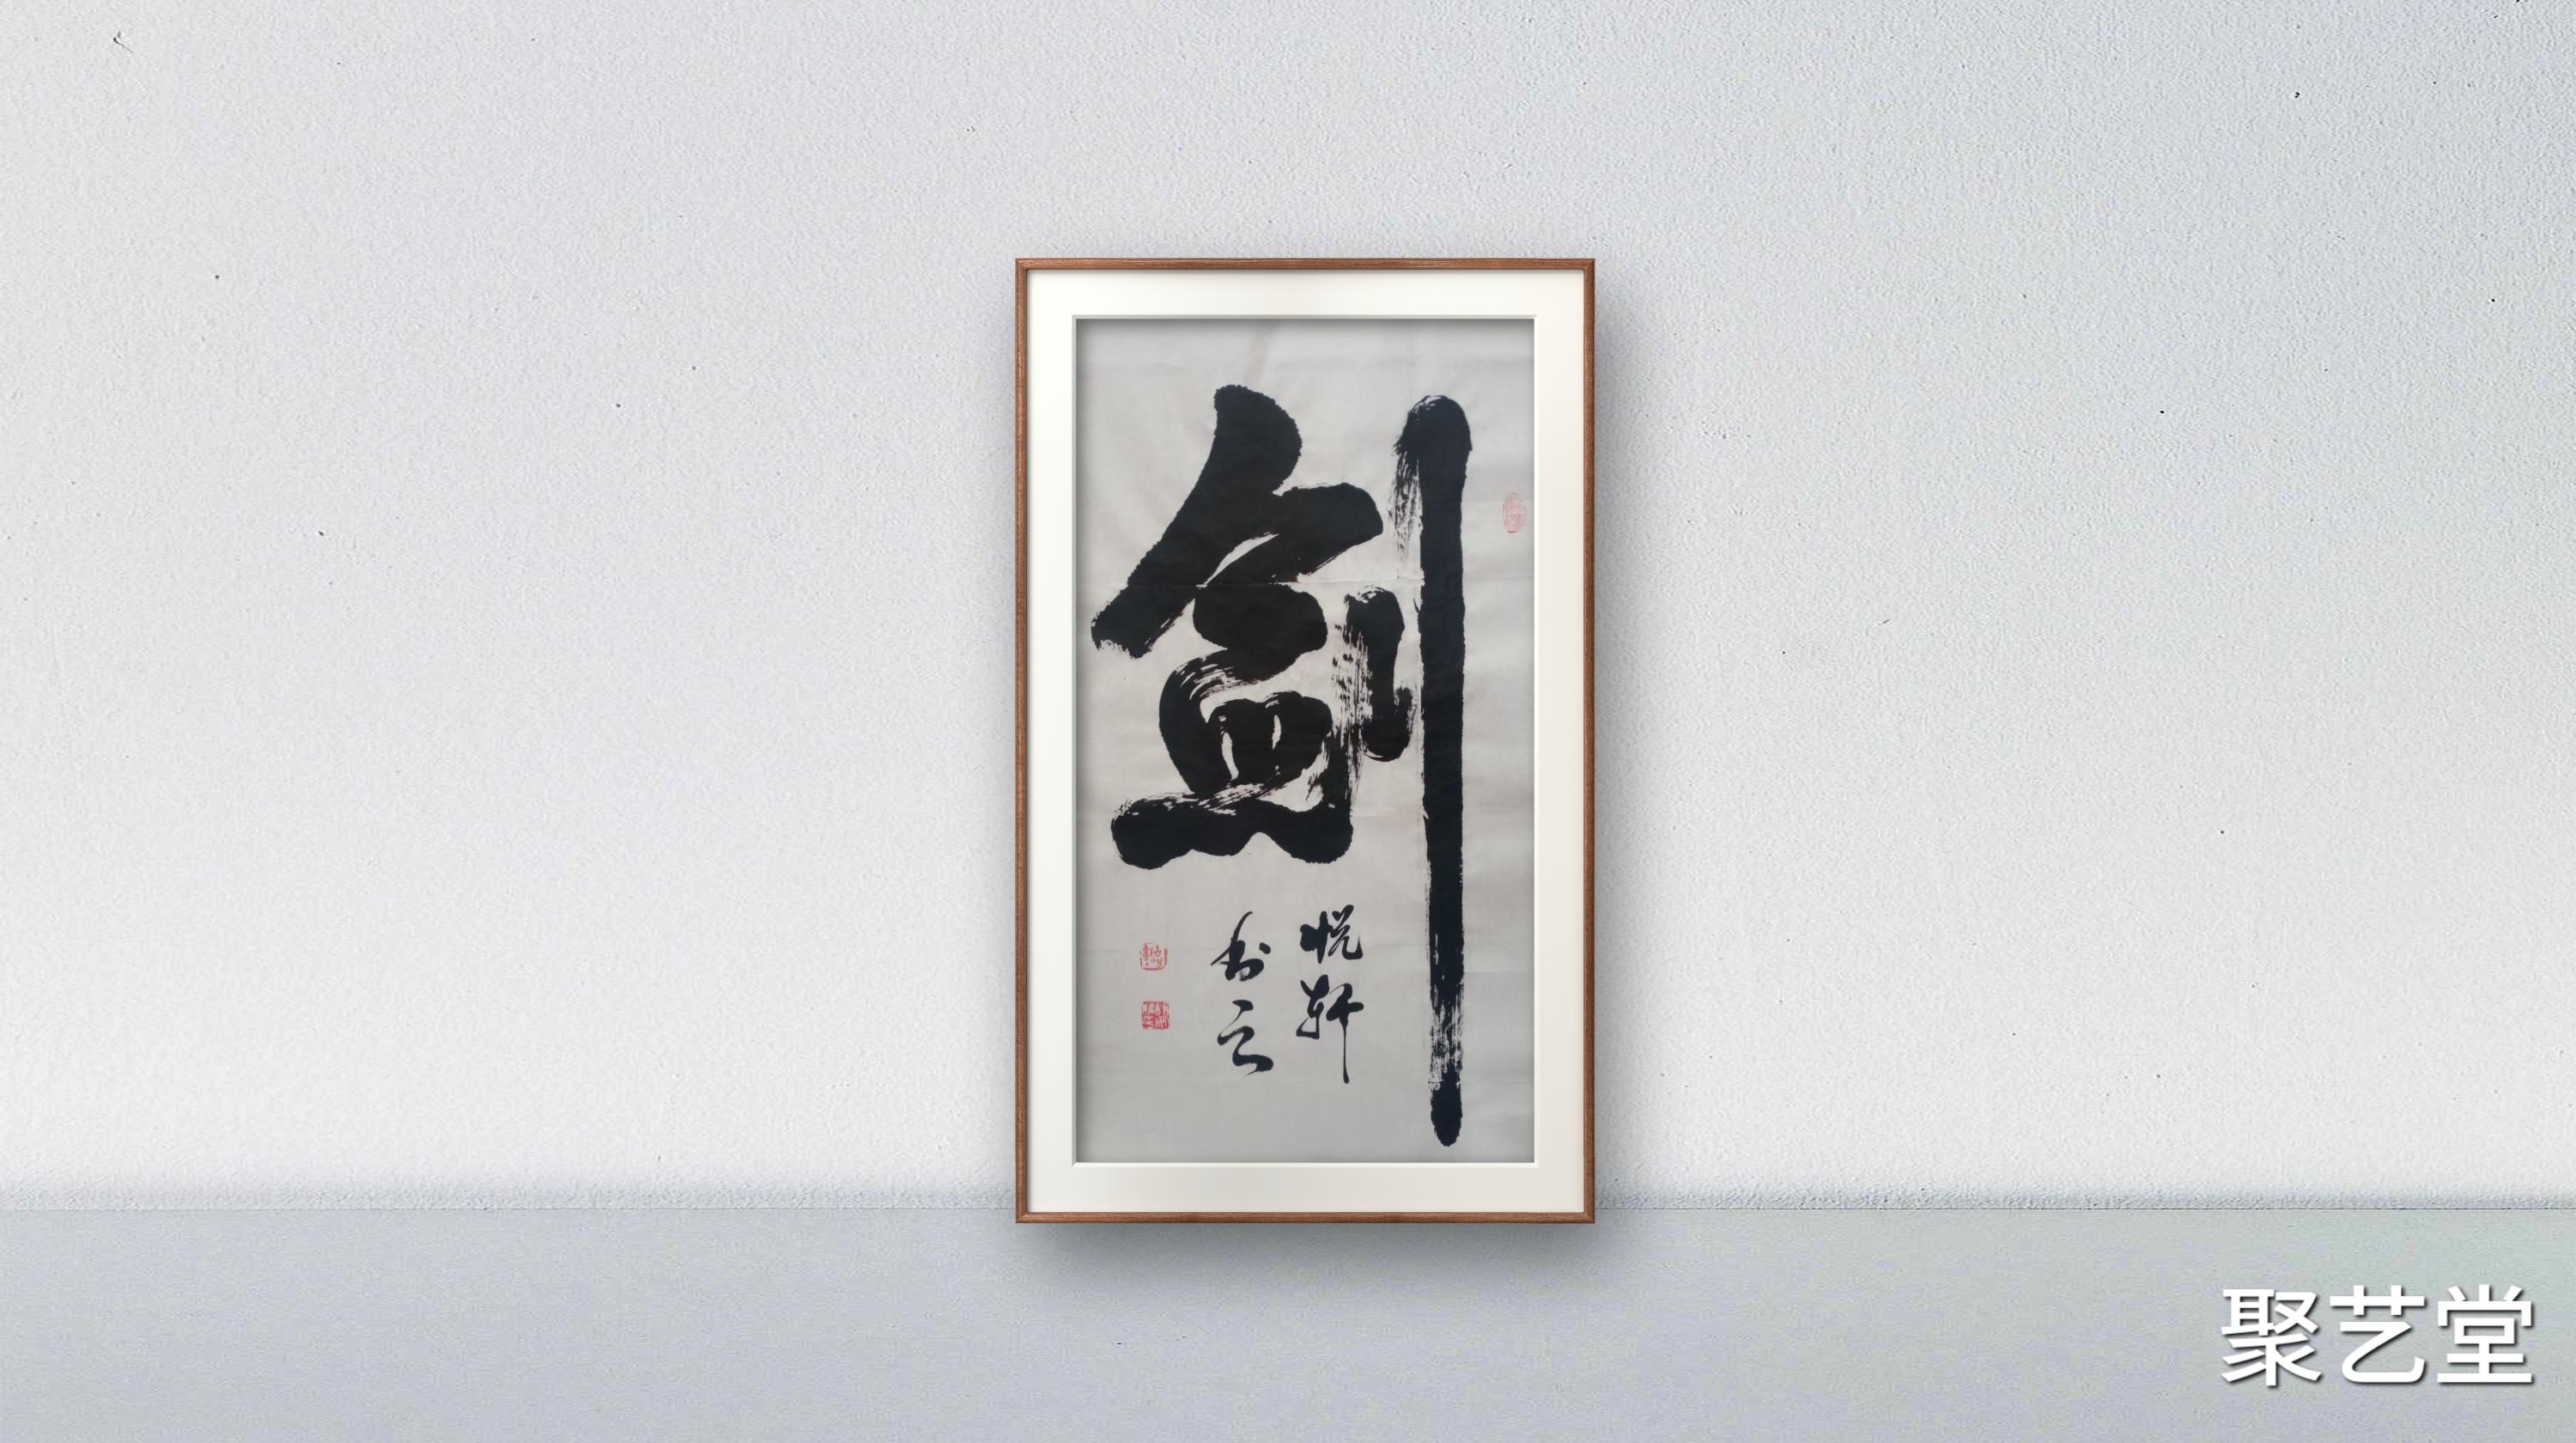 剑
悦轩
书之
聚艺堂